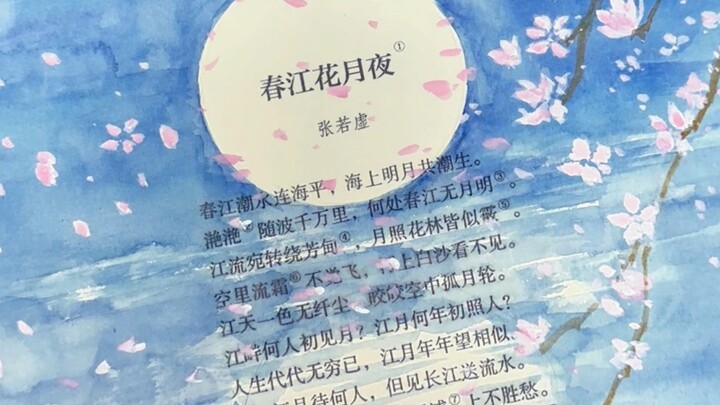 春江花月夜①
张若虚
春江潮水连海平，海上明月共潮生。
滟滟②随波千万里，何处春江无月明③。
江流宛转绕芳甸④，月照花林皆似霰⑤。
空里流霜⑥不觉飞，上白沙看不见。
江天一色无纤尘，皎皎空中孤月轮。
江畔何人初见月？江月何年初照人？
人生代代无穷已，江月年年望相似。
月待何人，但见长江送流水。
⑦上不胜愁。